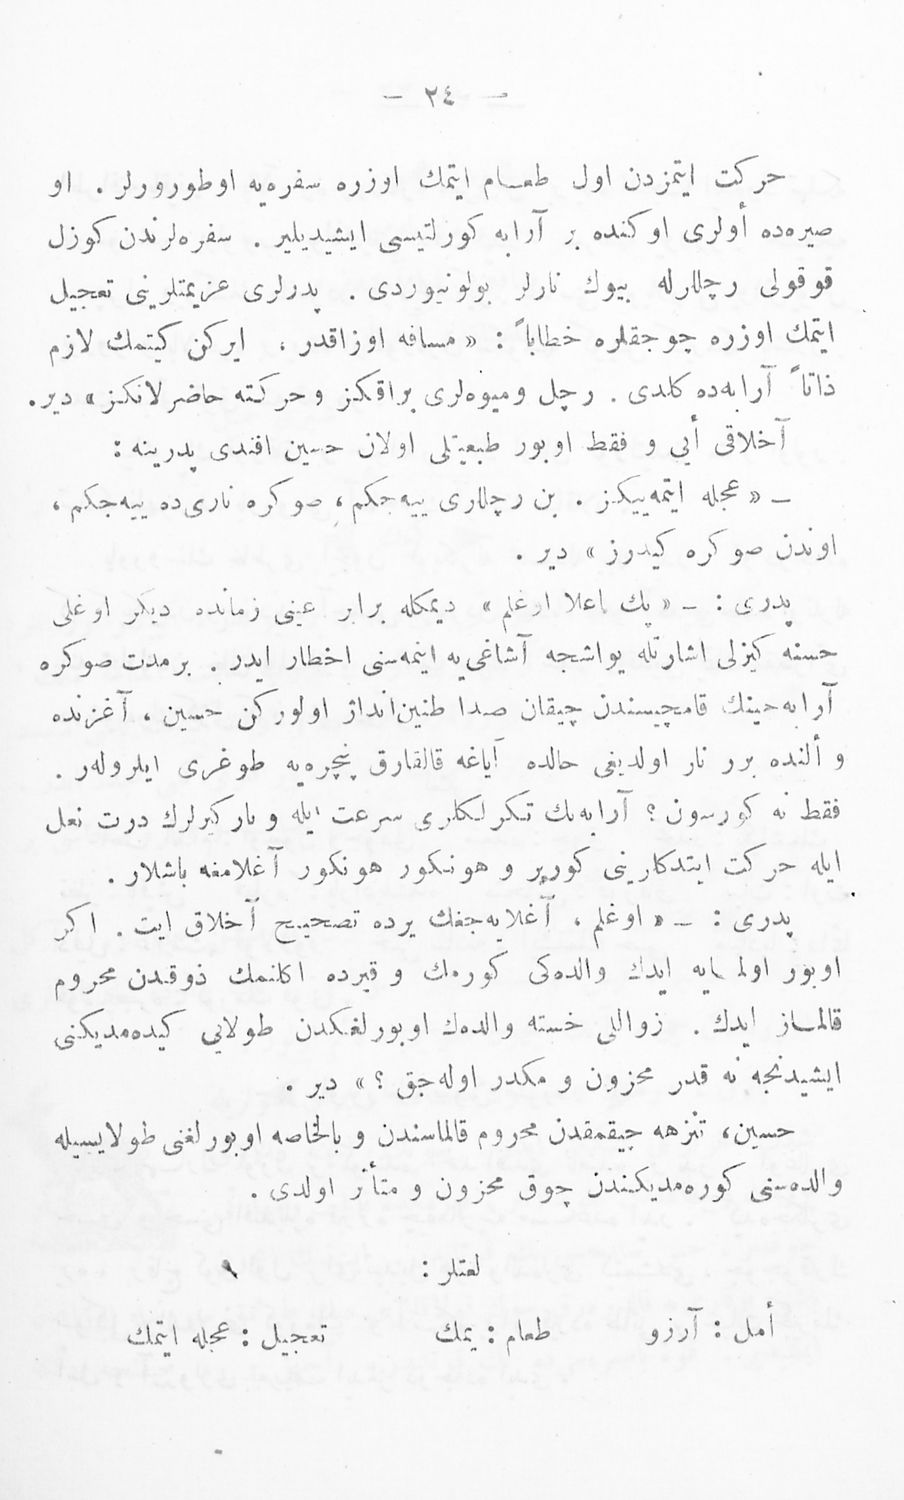 — ٢٤ —
حركت ايتمزدن اول طعام ايتمك اوزره سفره‌يه اوطورورلر . او
صيره‌ده أولرى اوكنده بر آرابه كورلتيسى ايشيديلير . سفره‌لرندن كوزل
قوقولى رچللرله بيوك نارلر بولونيوردى . پدرلرى عزيمتلرينى تعجيل
ايتمك اوزره چوجقلره خطاباً : « مسافه اوزاقدر ، ايركن كيتمك لازم
ذاتاً آرابه‌ده كلدى . رچل وميوه‌لرى براقكز وحركته حاضرلانكز » دير.
آخلاقى أيى و فقط اوبور طبيعتلى اولان حسين افندى پدرينه :
— « عجله ايتمه‌ييكز . بن رچللرى ييه‌جكم ، صوكره نارى‌ده ييه‌جكم ،
اوندن صوكره كيدرز » دير .
پدرى : — « پك اعلا اوغلم » ديمكله برابر عينى زمانده ديكر اوغلى
حسنه كيزلى اشارتله يواشجه آشاغى‌يه اينمه‌سنى اخطار ايدر . بر مدت صوكره
آرابه‌جينك قامچيسندن چيقان صدا طنين‌انداز اولوركن حسين ، آغزنده
و ألنده برر نار اولديغى حالده آياغه قالقارق پنچره‌يه طوغرى ايلرولر .
فقط نه كورسون ؟ آرابه‌نك تكرلكلرى سرعت ايله و باركيرلرك درت نعل
ايله حركت ايتدكلرينى كورير و هونكور هونكور آغلامغه باشلار .
پدرى : — « اوغلم ، آغلايه‌جغك يرده تصحيح آخلاق ايت . اكر
اوبور اولمايه ايدك والده‌كى كورمك و قيرده اكلنمك ذوقدن محروم
قالماز ايدك . زواللى خسته والده‌ك اوبورلغكدن طولايى كيده‌مديكنى
ايشيدنجه نه قدر محزون و مكدر اوله‌جق ؟ » دير .
حسين، تنزهه چيقمقدن محروم قالماسندن و بالخاصه اوبورلغنى طولاييسيله
والده‌سنى كوره‌مديكندن چوق محزون و متأثر اولدى .
لغتلر :
أمل : آرزو طعام : يمك تعجيل : عجله ايتمك